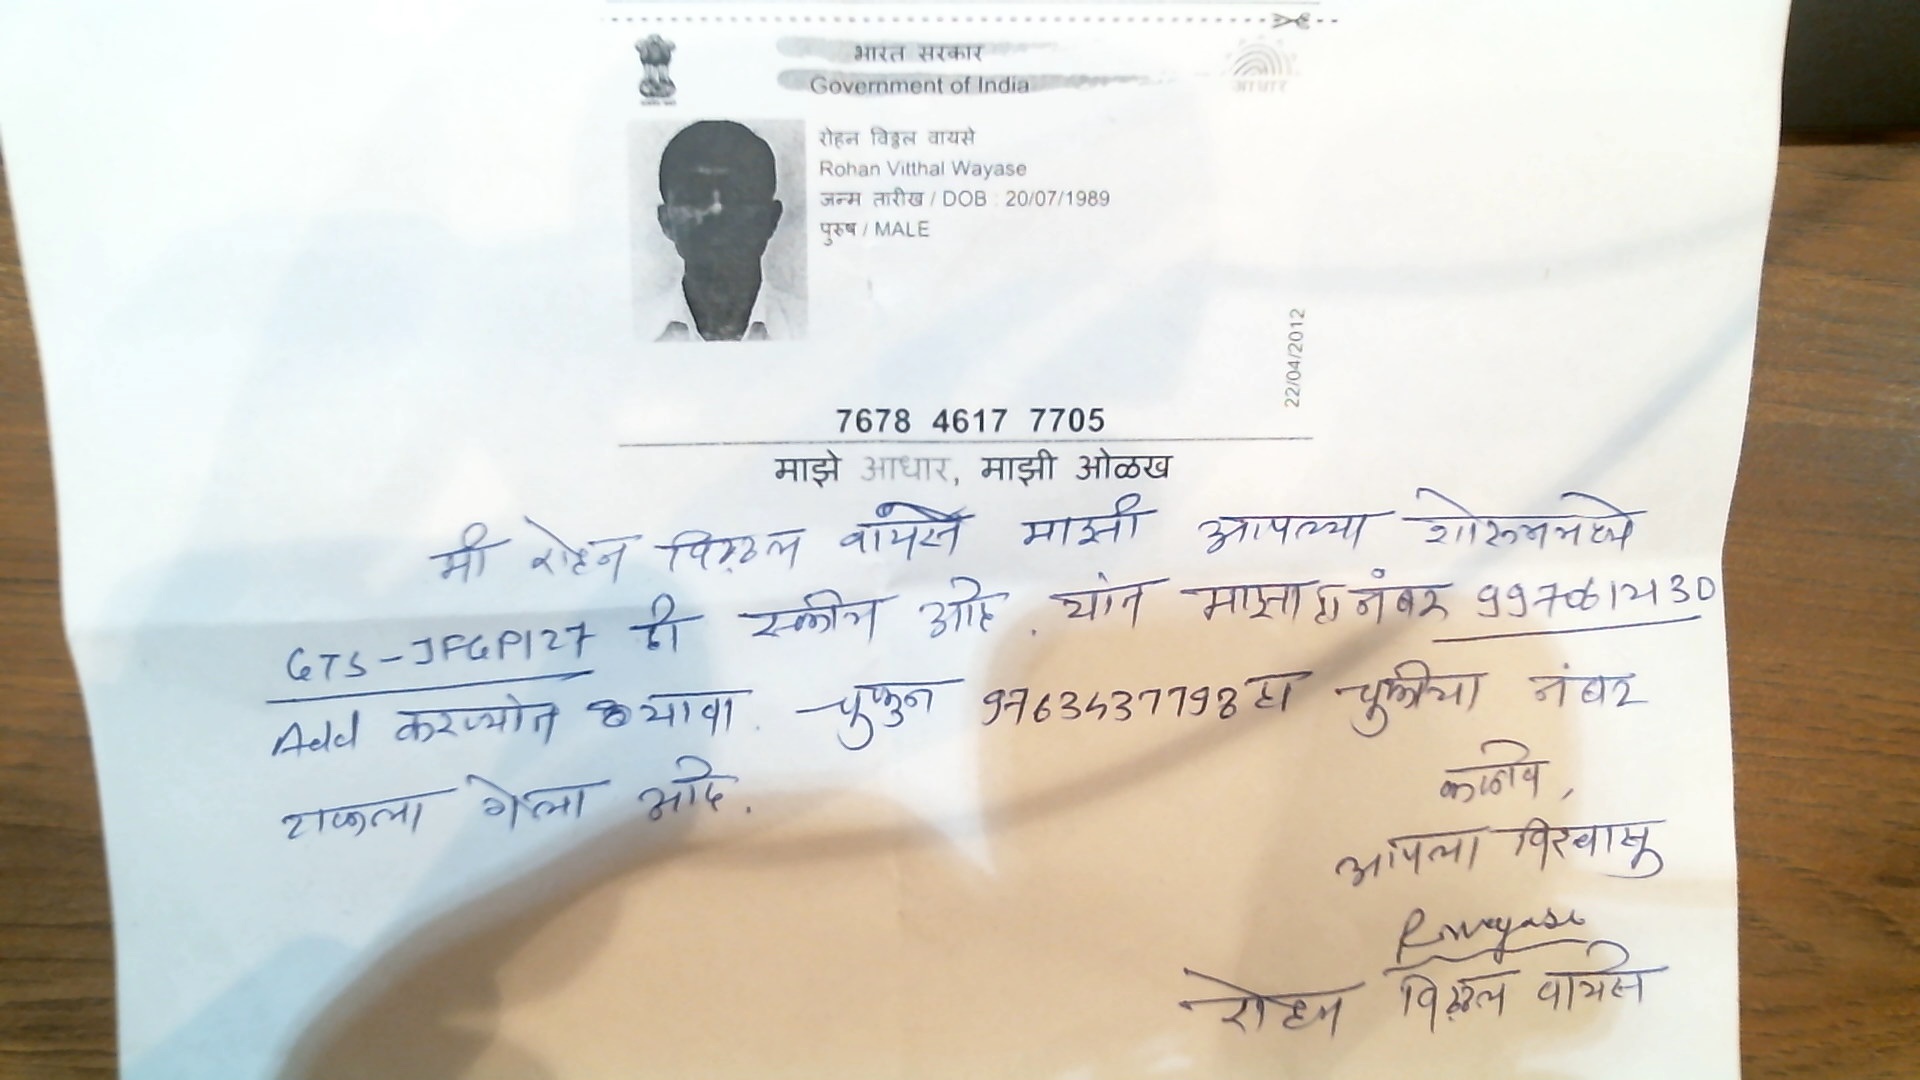 भारत सरकार
Government of India
आधार
रोहन विठ्ठल वायसे
Rohan Vitthal Wayase
जन्म तारीख / DOB : 20/07/1989
पुरुष / MALE
22/04/2012
7678 4617 7705
माझे आधार, माझी ओळख
मी रोहन विठ्ठल वायसे माझी आपल्या शोरूममध्ये
GTS-JFGP127 ही स्कीम आहे. यात माझा हा नंबर
Add करण्यात यावा. चुकुन 9763437798 हा चुकीचा नंबर
टाकला गेला आहे.
कळावे,
आपला विश्वासू
Rwayase
रोहन विठ्ठल वायसे